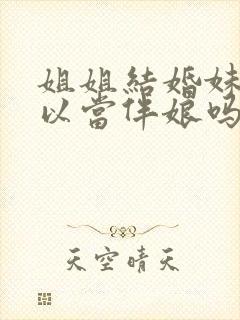 姐姐結婚妹
以當伴娘吗
天空晴天